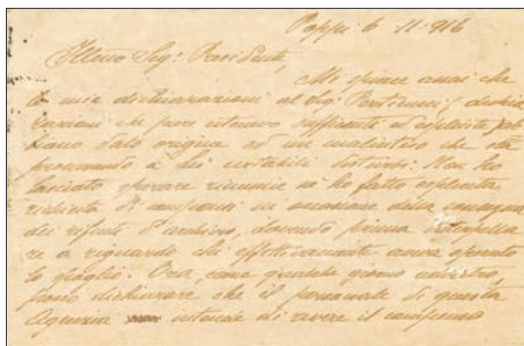 Poppi 6-11-916
Illmo Sig. Presidente,
Mi spiace assai che
le mie dichiarazioni al Sig. dichia
razioni che pure ritenevo sufficienti ed esplicite, ab
biano dato origine ad un malinteso che sta
procurando a lei disturbi. Non ho
lasciato sperare rinunce nè ho fatto esplicita
richiesta di compensi in occasione della consegna
dei rifiuti d'archivio, dovendo prima interpella
re a riguardo chi effettivamente aveva operato
lo spoglio. Ora, come qualche giorno addietro,
posso dichiarare che il personale di questa
Agenzia intende di avere il compenso